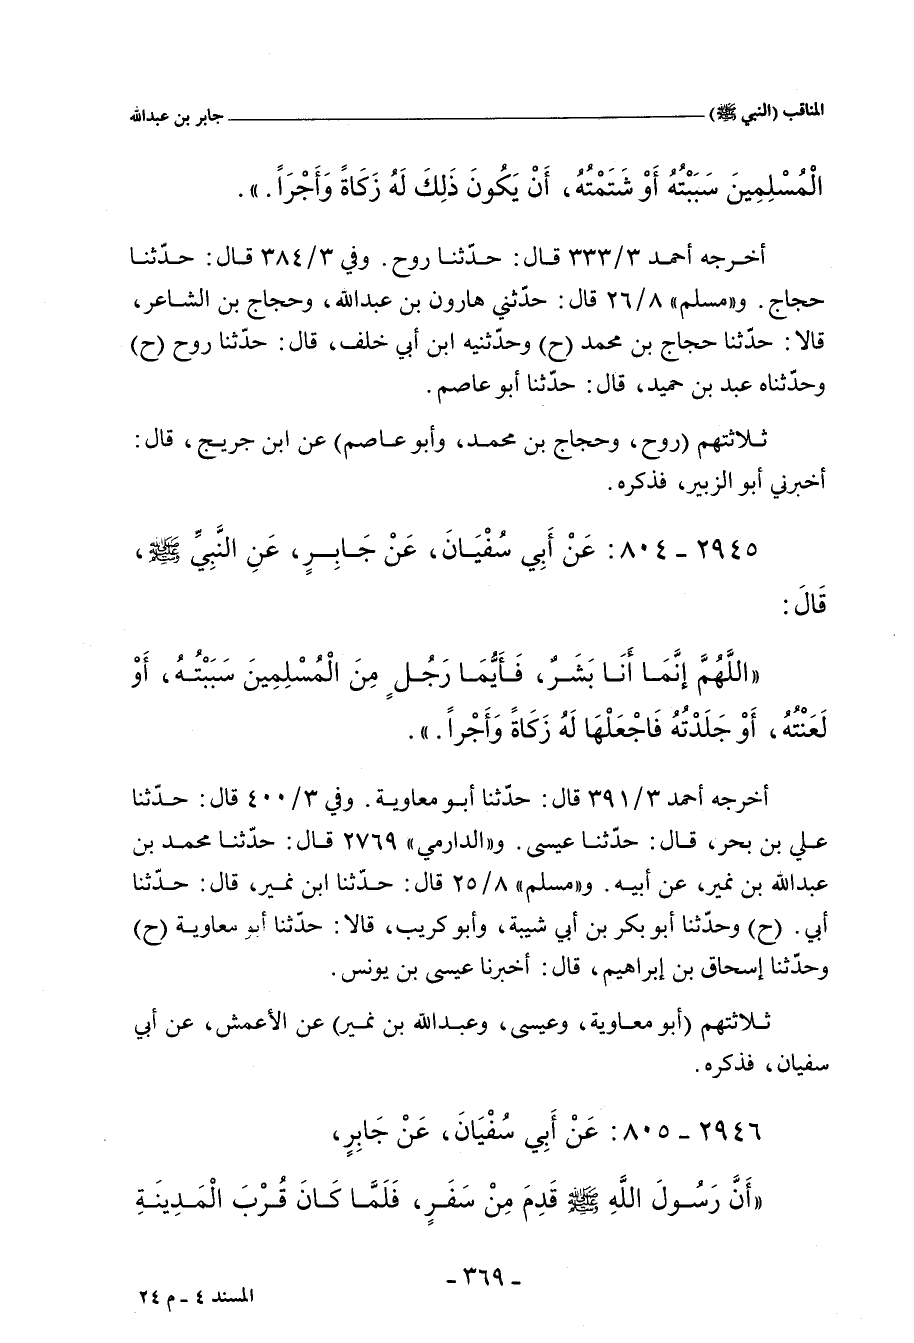 المناقب (النبي ﷺ) ــــــــــــــــــــ جابر بن عبدالله
الْمُسْلِمِينَ سَبَبْتُهُ أَوْ شَتَمْتُهُ، أَنْ يَكُونَ ذَلِكَ لَهُ زَكَاةً وَأَجْرَاً.».
أخرجه أحمد ٣٣٣/٣ قال: حدّثنا روح. وفي ٣٨٤/٣ قال: حدّثنا
حجاج. و«مسلم» ٢٦/٨ قال: حدّثني هارون بن عبدالله، وحجاج بن الشاعر،
قالا: حدّثنا حجاج بن محمد (ح) وحدّثنيه ابن أبي خلف، قال: حدّثنا روح (ح)
وحدّثناه عبد بن حميد، قال: حدّثنا أبو عاصم.
ثلاثتهم (روح، وحجاج بن محمد، وأبو عاصم) عن ابن جريج، قال:
أخبرني أبو الزبير، فذكره.
٢٩٤٥ - ٨٠٤: عَنْ أَبِي سُفْيَانَ، عَنْ جَابِرٍ، عَنِ النَّبِيِّ ﷺ،
قَالَ:
«اللَّهُمَّ إِنَّمَا أَنَا بَشَرٌ، فَأَيُّمَا رَجُلٍ مِنَ الْمُسْلِمِينَ سَبَبْتُهُ، أَوْ
لَعَنْتُهُ، أَوْ جَلَدْتُهُ فَاجْعَلْهَا لَهُ زَكَاةً وَأَجْراً.».
أخرجه أحمد ٣٩١/٣ قال: حدّثنا أبو معاوية. وفي ٤٠٠/٣ قال: حدّثنا
علي بن بحر، قال: حدّثنا عيسى. و«الدارمي» ٢٧٦٩ قال: حدّثنا محمد بن
عبدالله بن نمير، عن أبيه. و«مسلم» ٢٥/٨ قال: حدّثنا ابن نمير، قال: حدّثنا
أبي. (ح) وحدّثنا أبو بكر بن أبي شيبة، وأبو كريب، قالا: حدّثنا أبو معاوية (ح)
وحدّثنا إسحاق بن إبراهيم، قال: أخبرنا عيسى بن يونس.
ثلاثتهم (أبو معاوية، وعيسى، وعبدالله بن نمير) عن الأعمش، عن أبي
سفيان، فذكره.
٢٩٤٦ - ٨٠٥: عَنْ أَبِي سُفْيَانَ، عَنْ جَابِرٍ،
«أَنَّ رَسُولَ اللَّهِ ﷺ قَدِمَ مِنْ سَفَرٍ، فَلَمَّا كَانَ قُرْبَ الْمَدِينَةِ
- ٣٦٩ -
المسند ٤ - م ٢٤